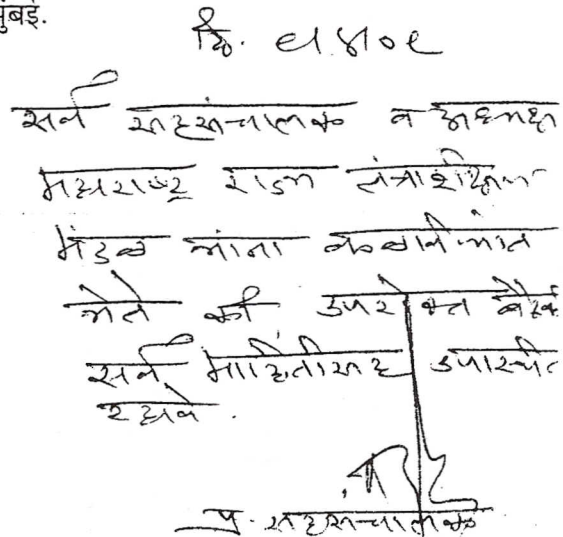 मुंबई.
दि. ८/४/०९
सर्व सहसंचालक व अध्यक्ष
महाराष्ट्र राज्य तंत्रशिक्षण
मंडळ यांना कळवाने यात
येते की उपरोक्त बैठक
सर्व माहितीसह उपास्थित
रहावे.
प्र. सहसंचालक